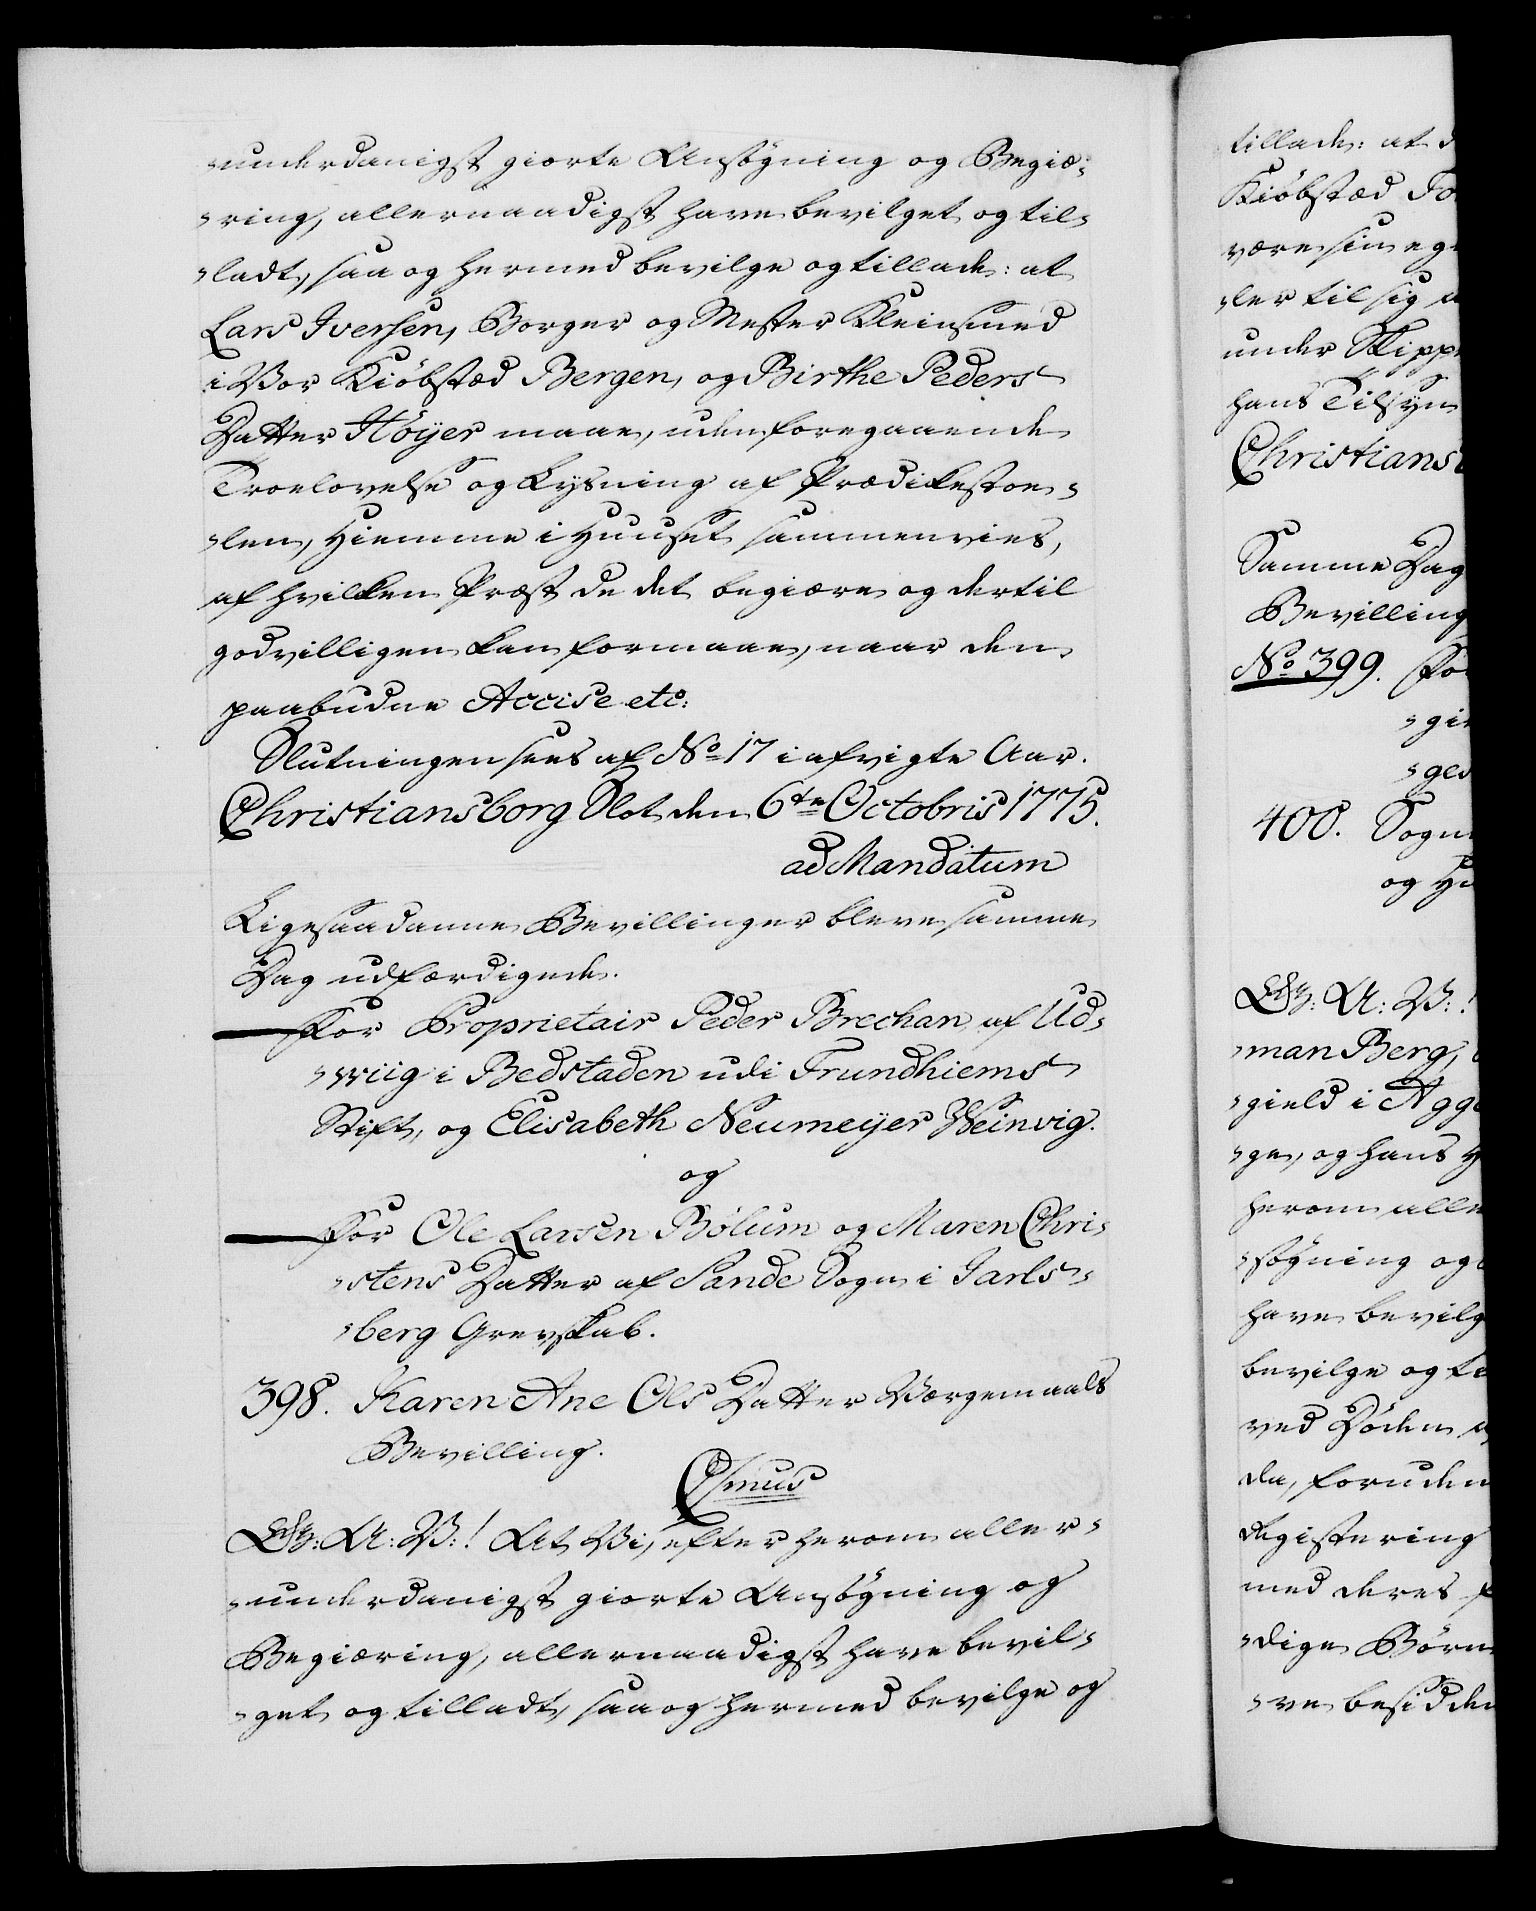 underdanigst giorte Ansøgning og Begiæ-
ring, allernaadigst have bevilget og til-
ladt, saa og hermed bevilge og tillade: at
Lars Iversen, Borger og Mester Kleinsmed
i Vor Kiöbstæd Bergen, og Birthe Peders
Datter Höyer maae, uden foregaaende
Troelovelse og Lysning af Prædikestoe-
len, hiemme i Huuset sammenvies,
af hvilken Præst de det begiære og dertil
godvilligen kan formaae, naar den
paabudne Accise etc:
Slutningen sees af No 17 i afvigte Aar.
Christiansborg Slot den 6te Octobris 1775.
ad Mandatum
Ligesaadanne Bevillinger bleve samme
Dag udfærdigede.
For Proprietair Peder Brechan af Ud-
wiig i Bedstaden udi Trundhiems
Stift, og Elisabeth Neumeyer Weinvig.
og
For Ole Larsen Bölum og Maren Chri-
stens Datter af Sande Sogn i Jarls-
berg Grevskab.
398. Karen Ane Ols Datter Værgemaals
Bevilling.
Csmus
G: A: V:! At Vi, efter herom aller-
underdanigst giorte Ansøgning og
Begiæring, allernaadigst have bevil-
get og tilladt, saa og hermed bevilge og
tillade: at
Kiöbstæd
være sin
ler til sig
under
hans Tilsyn
Christians
Samme Dag
Bevilling
No 399.
400. Sogn
og
G: A: V:!
man Berg,
gield i Agge
ge, og hans
herom alle
søgning og
have bevilg
bevilge og
ved Døden
da, foruden
Registering
med deres
dige Børn
ve besidde